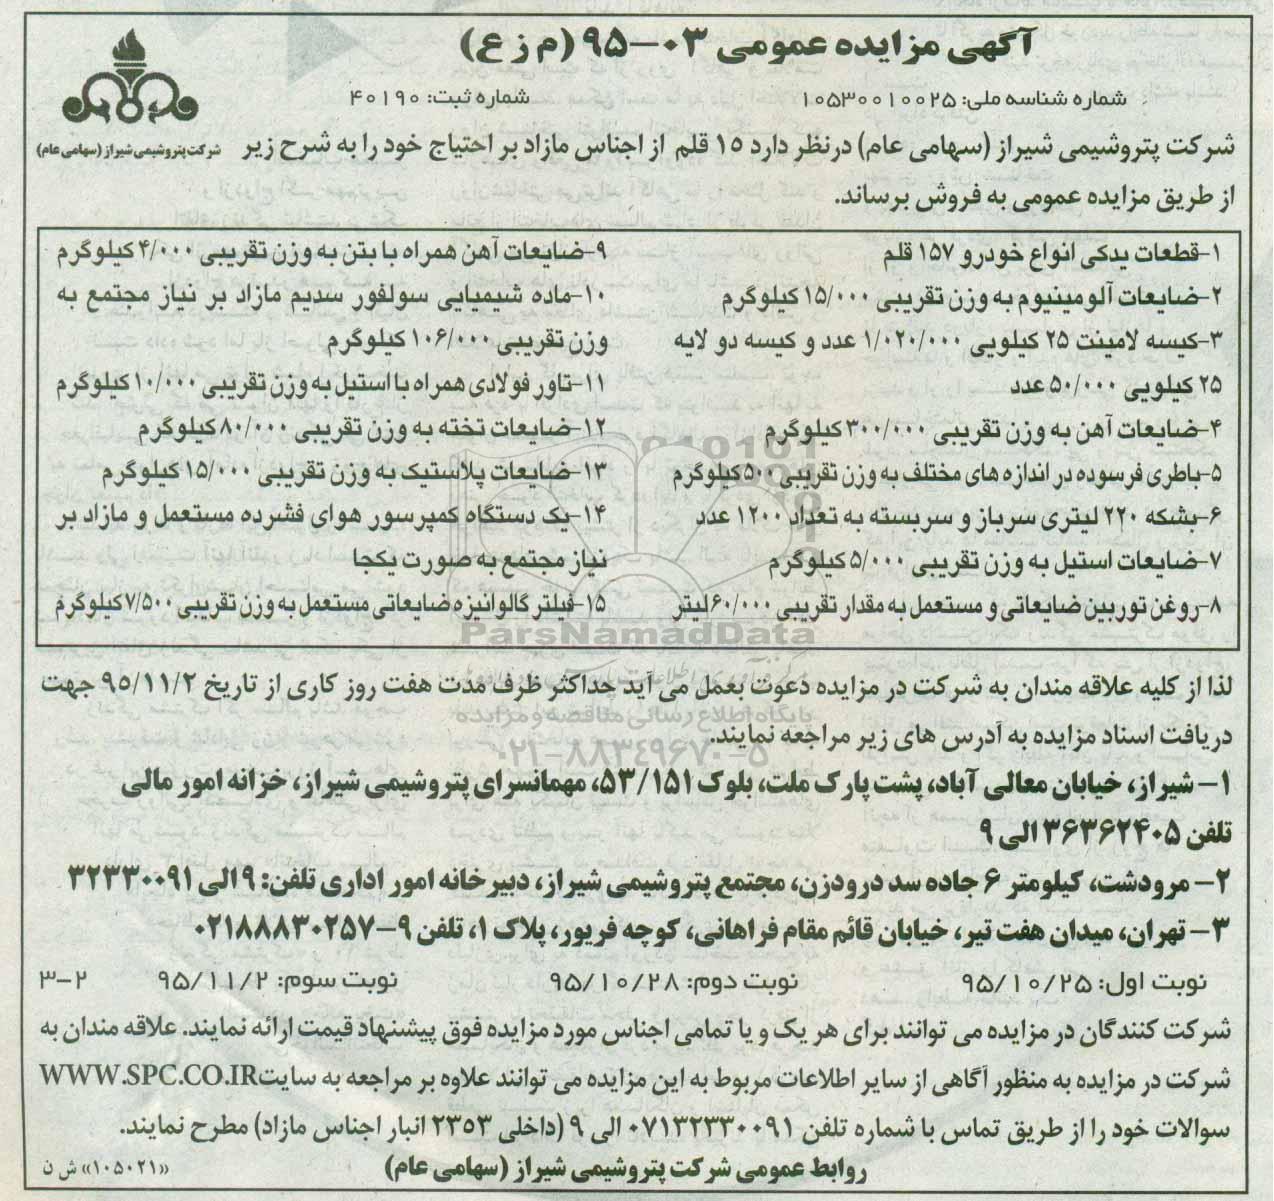 آگهی مزایده عمومی ۰۳-۹۵ (م ز ع)
شماره شناسه ملی: ۱۰۵۳۰۰۱۰۰۲۵
شماره ثبت: ۴۰۱۹۰
شرکت پتروشیمی شیراز (سهامی عام)
شرکت پتروشیمی شیراز (سهامی عام) درنظر دارد ۱۵ قلم از اجناس مازاد بر احتیاج خود را به شرح زیر
از طریق مزایده عمومی به فروش برساند.
۱-قطعات یدکی انواع خودرو ۱۵۷ قلم
۲-ضایعات آلومینیوم به وزن تقریبی ۱۵/۰۰۰ کیلوگرم
۳-کیسه لامینت ۲۵ کیلویی ۱/۰۲۰/۰۰۰ عدد و کیسه دو لایه
۲۵ کیلویی ۵۰/۰۰۰ عدد
۴-ضایعات آهن به وزن تقریبی ۳۰۰/۰۰۰ کیلوگرم
۵-باطری فرسوده در اندازه های مختلف به وزن تقریبی ۵۰۰ کیلوگرم
۶-بشکه ۲۲۰ لیتری سرباز و سربسته به تعداد ۱۲۰۰ عدد
۷-ضایعات استیل به وزن تقریبی ۵/۰۰۰ کیلوگرم
۸-روغن توربین ضایعاتی و مستعمل به مقدار تقریبی ۶۰/۰۰۰ لیتر
۹-ضایعات آهن همراه با بتن به وزن تقریبی ۴/۰۰۰ کیلوگرم
۱۰-ماده شیمیایی سولفور سدیم مازاد بر نیاز مجتمع به
وزن تقریبی ۱۰۶/۰۰۰ کیلوگرم
۱۱-تاور فولادی همراه با استیل به وزن تقریبی ۱۰/۰۰۰ کیلوگرم
۱۲-ضایعات تخته به وزن تقریبی ۸۰/۰۰۰ کیلوگرم
۱۳-ضایعات پلاستیک به وزن تقریبی ۱۵/۰۰۰ کیلوگرم
۱۴-یک دستگاه کمپرسور هوای فشرده مستعمل و مازاد بر
نیاز مجتمع به صورت یکجا
۱۵-فیلتر گالوانیزه ضایعاتی مستعمل به وزن تقریبی ۷/۵۰۰ کیلوگرم
ParsNamadData
لذا از کلیه علاقه مندان به شرکت در مزایده دعوت بعمل می آید حداکثر ظرف مدت هفت روز کاری از تاریخ ۹۵/۱۱/۲ جهت
پایگاه اطلاع رسانی مناقصه و مزایده
دریافت اسناد مزایده به آدرس های زیر مراجعه نمایند.
۰۲۱-۸۸۳۴۹۶۷۰-۵
۱- شیراز، خیابان معالی آباد، پشت پارک ملت، بلوک ۵۳/۱۵۱، مهمانسرای پتروشیمی شیراز، خزانه امور مالی
تلفن ۳۶۳۶۲۴۰۵ الی ۹
۲- مرودشت، کیلومتر ۶ جاده سد درودزن، مجتمع پتروشیمی شیراز، دبیرخانه امور اداری تلفن: ۹ الی ۳۲۳۳۰۰۹۱
۳- تهران، میدان هفت تیر، خیابان قائم مقام فراهانی، کوچه فریور، پلاک ۱، تلفن ۹-۰۲۱۸۸۸۳۰۲۵۷
نوبت اول: ۹۵/۱۰/۲۵ نوبت دوم: ۹۵/۱۰/۲۸ نوبت سوم: ۹۵/۱۱/۲ ۳-۲
شرکت کنندگان در مزایده می توانند برای هر یک و یا تمامی اجناس مورد مزایده فوق پیشنهاد قیمت ارائه نمایند. علاقه مندان به
شرکت در مزایده به منظور آگاهی از سایر اطلاعات مربوط به این مزایده می توانند علاوه بر مراجعه به سایت WWW.SPC.CO.IR
سوالات خود را از طریق تماس با شماره تلفن ۰۷۱۳۲۳۳۰۰۹۱ الی ۹ (داخلی ۲۳۵۳ انبار اجناس مازاد) مطرح نمایند.
روابط عمومی شرکت پتروشیمی شیراز (سهامی عام)
«۱۰۵۰۲۱» ش ن